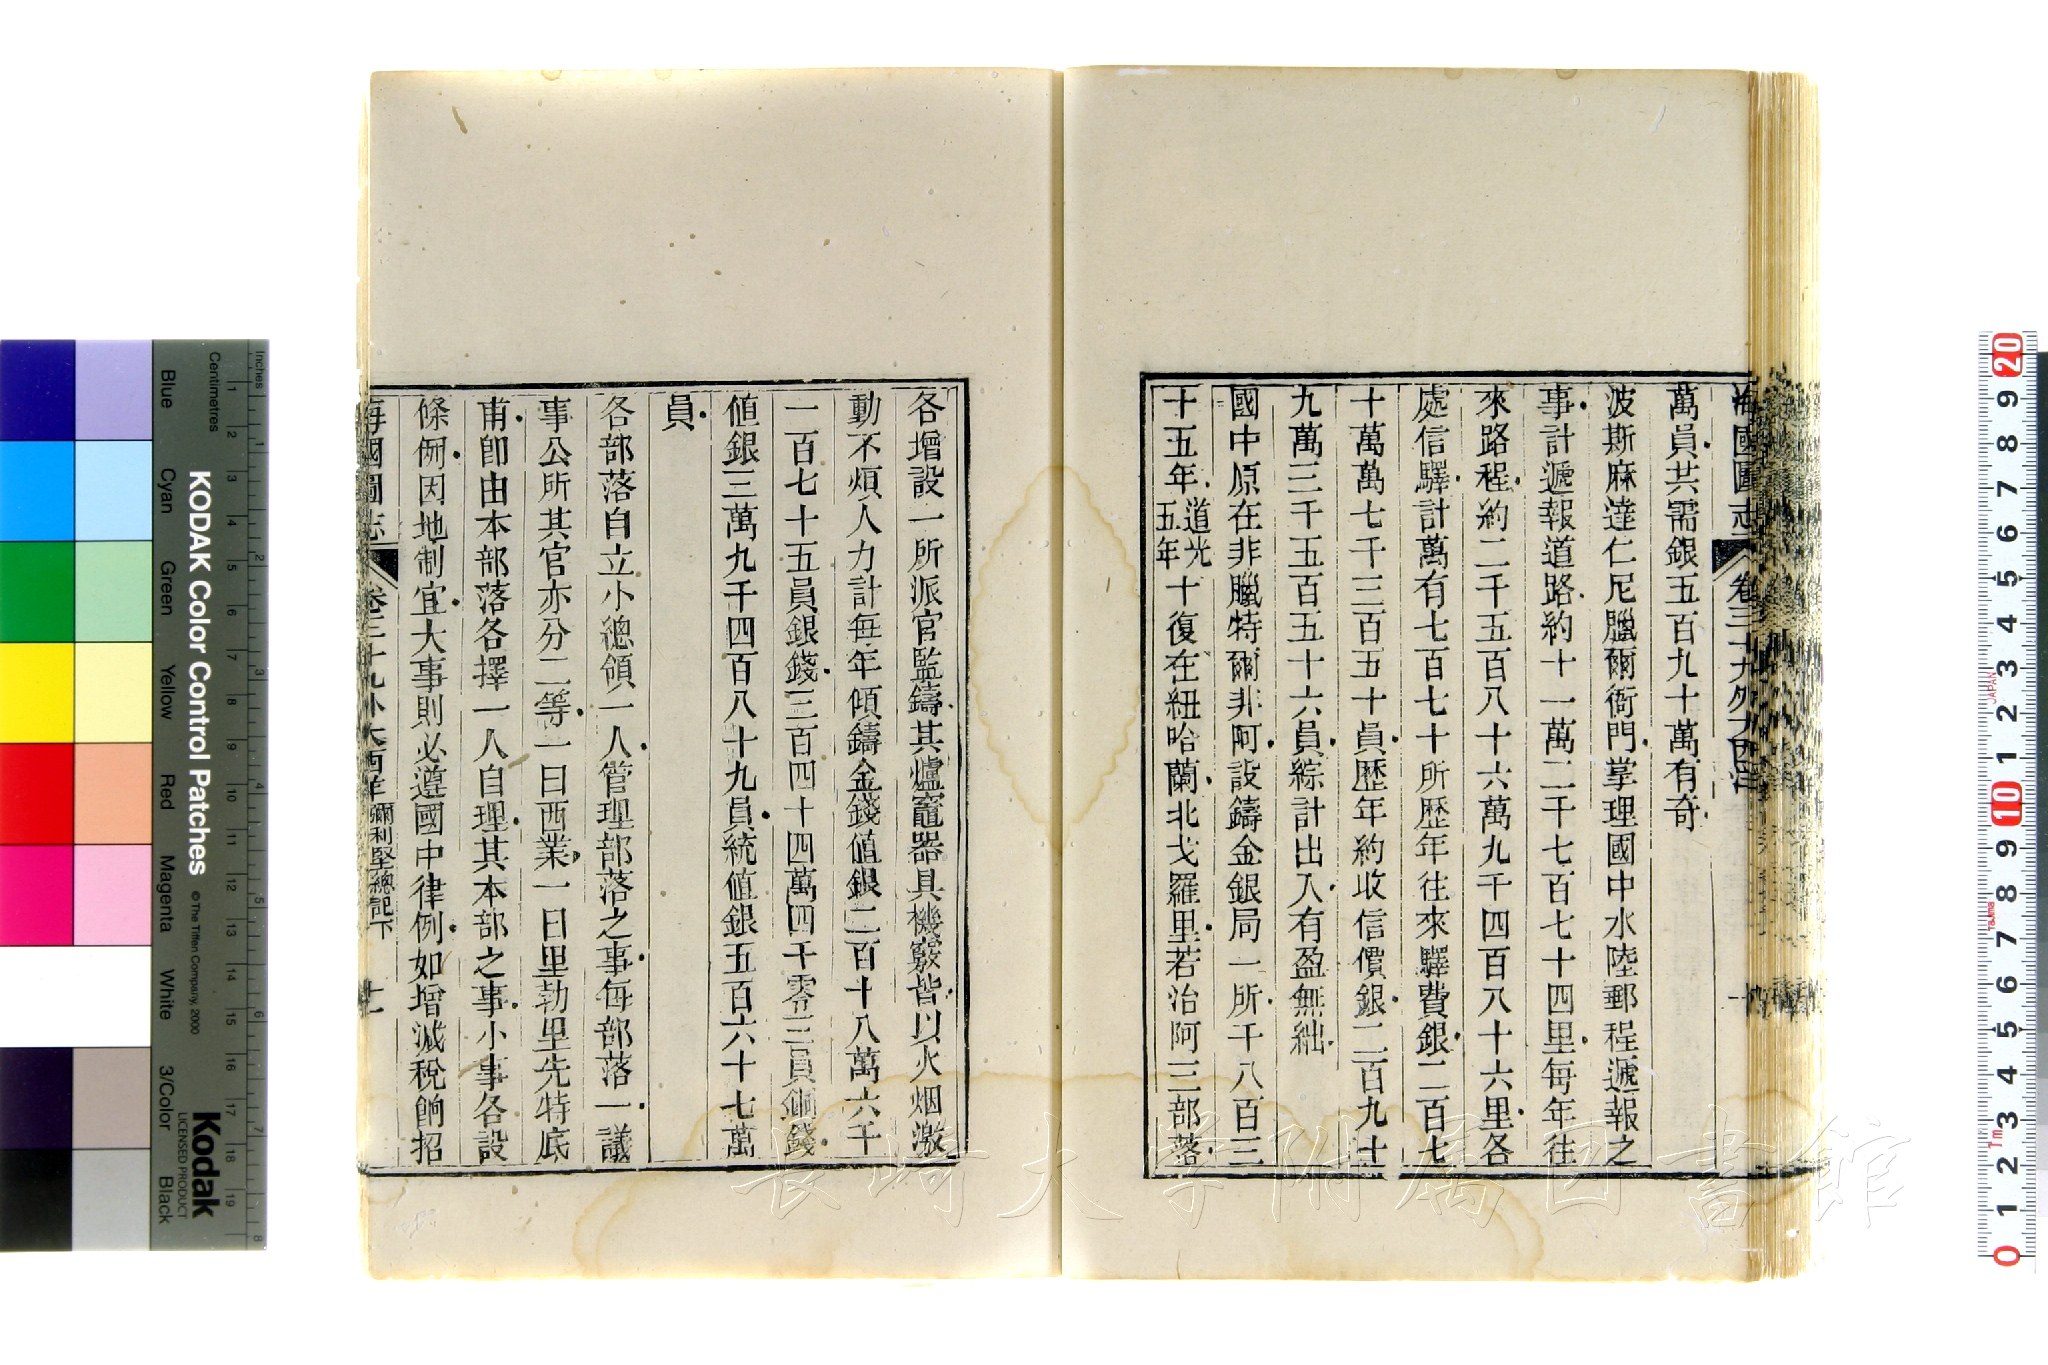 海國圖志 卷三十九外大西洋
萬員共需銀五百九十萬有奇
波斯麻達仁尼臘爾衙門掌理國中水陸郵程遞報之
事計遞報道路約十一萬二千七百七十四里每年往
來路程約二千五百八十六萬九千四百八十六里各
處信驛計萬有七百七十所歷年往來驛費銀二百七
十萬萬七千三百五十員歷年約收信價銀二百九十
九萬三千五百五十六員綜計出入有盈無絀
國中原在非臘特爾非阿設鑄金銀局一所千八百三
十五年道光五年十復在紐哈蘭北戈羅里若治阿三部落
各增設一所派官監鑄其爐竈器具機竅皆以火烟激
動不煩人力計每年傾鑄金錢值銀二百十八萬六千
二百七十五員銀錢三百四十四萬四千零三員銅錢
值銀三萬九千四百八十九員統值銀五百六十七萬
員
各部落自立小總領一人管理部落之事每部落一議
事公所其官亦分二等一曰西業一曰里勃里先特底
甫卽由本部落各擇一人自理其本部之事小事各設
條例因地制宜大事則必遵國中律例如增減稅餉招
海國圖志 卷三十九外大西洋 彌利堅總記下 十一
長崎大学附属図書館
KODAK Color Control Patches
© The Tiffen Company, 2000
Kodak
LICENSED PRODUCT
Inches
Centimetres
1 2 3 4 5 6 7 8 9 10 11 12 13 14 15 16 17 18 19
1 2 3 4 5 6 7 8
Blue
Cyan
Green
Yellow
Red
Magenta
White
3/Color
Black
20 9 8 7 6 5 4 3 2 1 10 9 8 7 6 5 4 3 2 1 0
JAPAN
Tajima